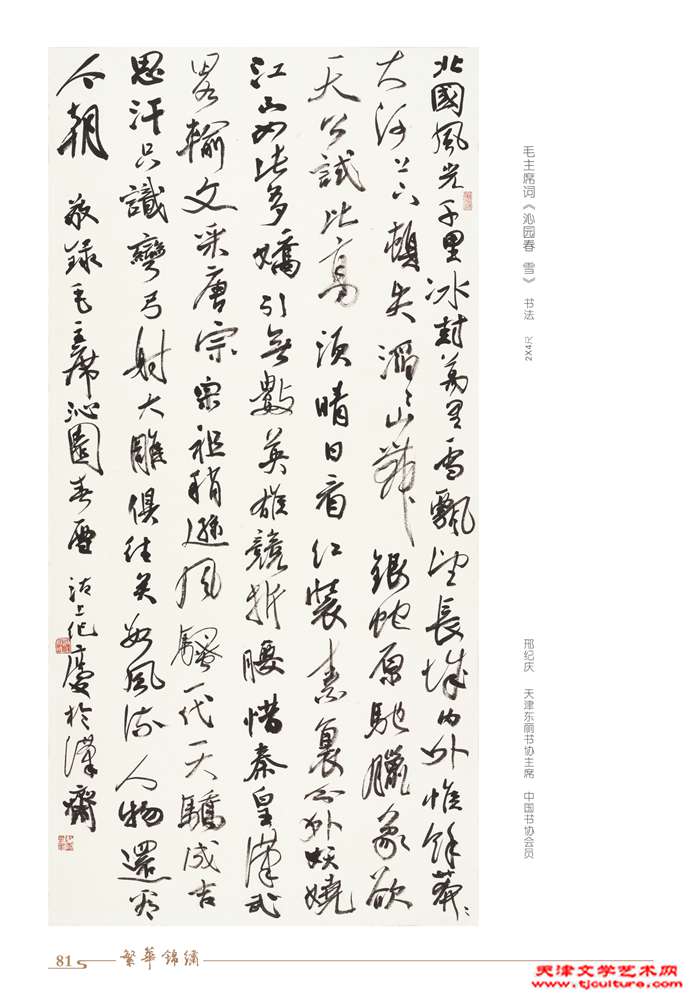 北國風光千里冰封萬里雪飄望長城內外惟餘莽〻
大河上下頓失滔〻山舞銀蛇原馳臘象欲
天公試比高須晴日看紅裝素裹分外妖嬈
江山如此多嬌引無數英雄競折腰惜秦皇漢武
畧輸文采唐宗宋祖稍遜風騷一代天驕成吉
思汗只識彎弓射大雕俱往矣數風流人物還看
今朝 敬録毛主席沁園春雪 沽上紀慶於漢齋
毛主席词《沁园春 雪》 书法 2X4尺
邢纪庆 天津东丽书协主席 中国书协会员
81 繁華錦繡
天津文学艺术网
www.tjculture.com